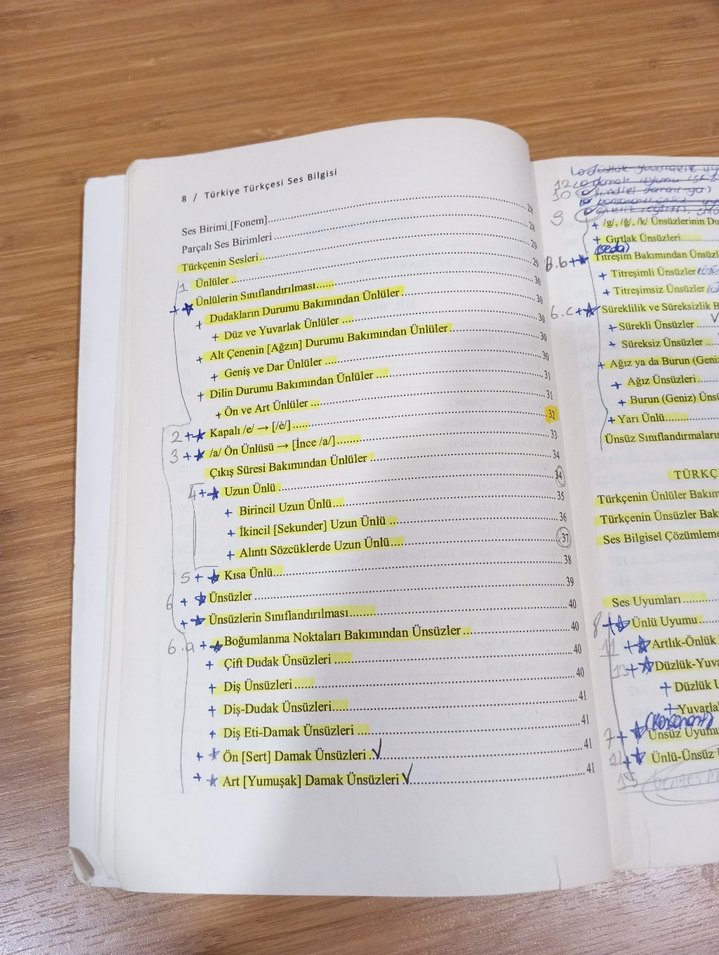 8 / Türkiye Türkçesi Ses Bilgisi
Ses Birimi [Fonem]..........28
Parçalı Ses Birimleri..........28
Türkçenin Sesleri..........29
1 Ünlüler..........29
+ Ünlülerin Sınıflandırılması..........30
+ Dudakların Durumu Bakımından Ünlüler..........30
+ Düz ve Yuvarlak Ünlüler..........30
+ Alt Çenenin [Ağzın] Durumu Bakımından Ünlüler..........30
+ Geniş ve Dar Ünlüler..........30
+ Dilin Durumu Bakımından Ünlüler..........31
+ Ön ve Art Ünlüler..........31
2 + Kapalı /e/ → [/ė/]..........32
3 + /a/ Ön Ünlüsü → [İnce /a/]..........33
Çıkış Süresi Bakımından Ünlüler..........34
4 + Uzun Ünlü..........34
+ Birincil Uzun Ünlü..........35
+ İkincil [Sekunder] Uzun Ünlü..........36
+ Alıntı Sözcüklerde Uzun Ünlü..........37
5 + Kısa Ünlü..........38
6 + Ünsüzler..........39
+ Ünsüzlerin Sınıflandırılması..........40
6.a + Boğumlanma Noktaları Bakımından Ünsüzler..........40
+ Çift Dudak Ünsüzleri..........40
+ Diş Ünsüzleri..........40
+ Diş-Dudak Ünsüzleri..........41
+ Diş Eti-Damak Ünsüzleri..........41
+ Ön [Sert] Damak Ünsüzleri..........41
+ Art [Yumuşak] Damak Ünsüzleri..........41
12
10
9
+ /g/, /ğ/, /k/ Ünsüzlerinin
+ Gırtlak Ünsüzleri
8.b + Titreşim Bakımından
+ Titreşimli Ünsüzler
+ Titreşimsiz Ünsüzler
6.c + Süreklilik ve Süreksizlik
+ Sürekli Ünsüzler
+ Süreksiz Ünsüzler
+ Ağız ya da Burun
+ Ağız Ünsüzleri
+ Burun (Geniz)
+ Yarı Ünlü
Ünsüz Sınıflandırmaları
Türkçenin Ünlüler
Türkçenin Ünsüzler
Ses Bilgisel Çözümleme
Ses Uyumları
8 + Ünlü Uyumu
11 + Artlık-Önlük
13 + Düzlük-
+ Düzlük
+
7 + Ünsüz
11 + Ünlü-Ünsüz
15